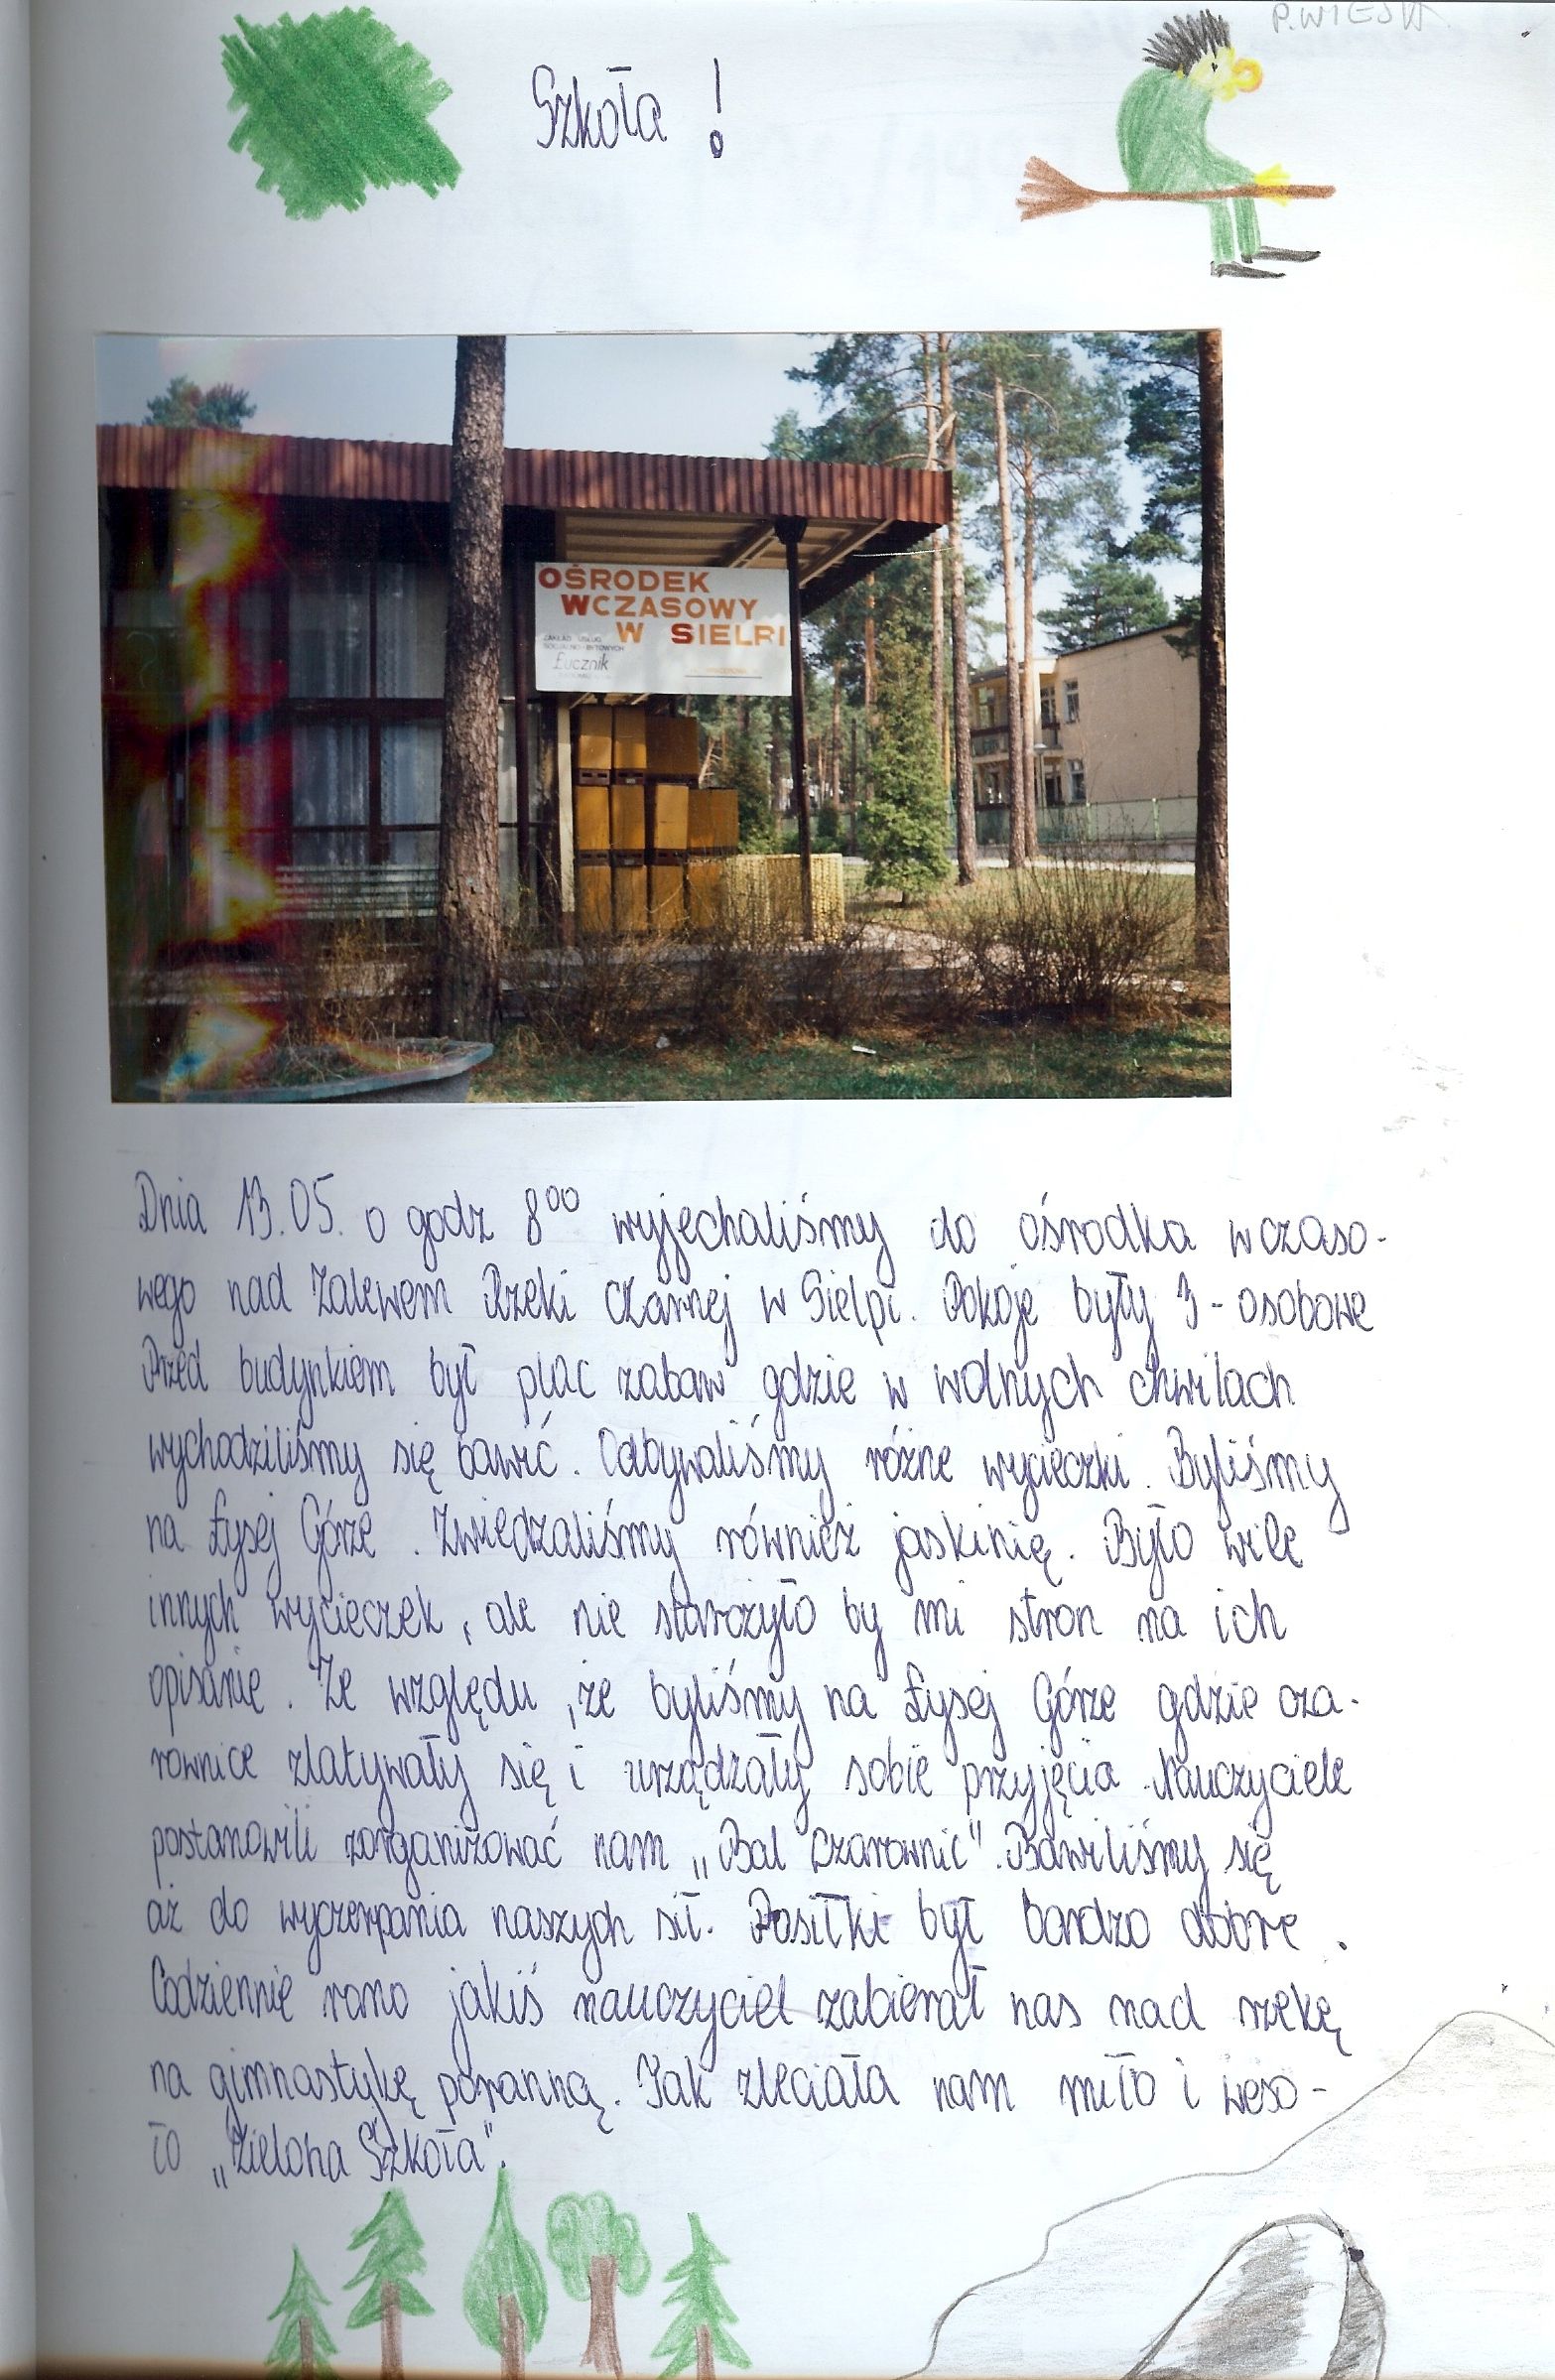 P. WIESIA
Szkoła!
OŚRODEK
WCZASOWY
W SIELPI
ZAKŁAD USŁUG
SOCJALNO-BYTOWYCH
Łucznik
Dnia 13.05. o godz 8⁰⁰ wyjechaliśmy do ośrodka wczaso-
wego nad Zalewem Rzeki Czarnej w Sielpi. Pokoje były 3-osobowe
Przed budynkiem był plac zabaw gdzie w wolnych chwilach
wychodziliśmy się bawić. Odbywaliśmy różne wycieczki. Byliśmy
na Łysej Górze. Zwiedzaliśmy również jaskinię. Było wile
innych wycieczek, ale nie starożyło by mi stron na ich
opisanie. Ze względu, że byliśmy na Łysej Górze gdzie cza-
rownice zlatywały się i urządzały sobie przyjęcia. Nauczyciele
postanowili zorganizować nam „Bal Czarownic". Bawiliśmy się
aż do wyczerpania naszych sił. Posiłki był bardzo dobre.
Codziennie rano jakiś nauczyciel zabierał nas nad rzekę
na gimnastykę poranną. Tak zleciała nam miło i weso-
ło „Zielona Szkoła".